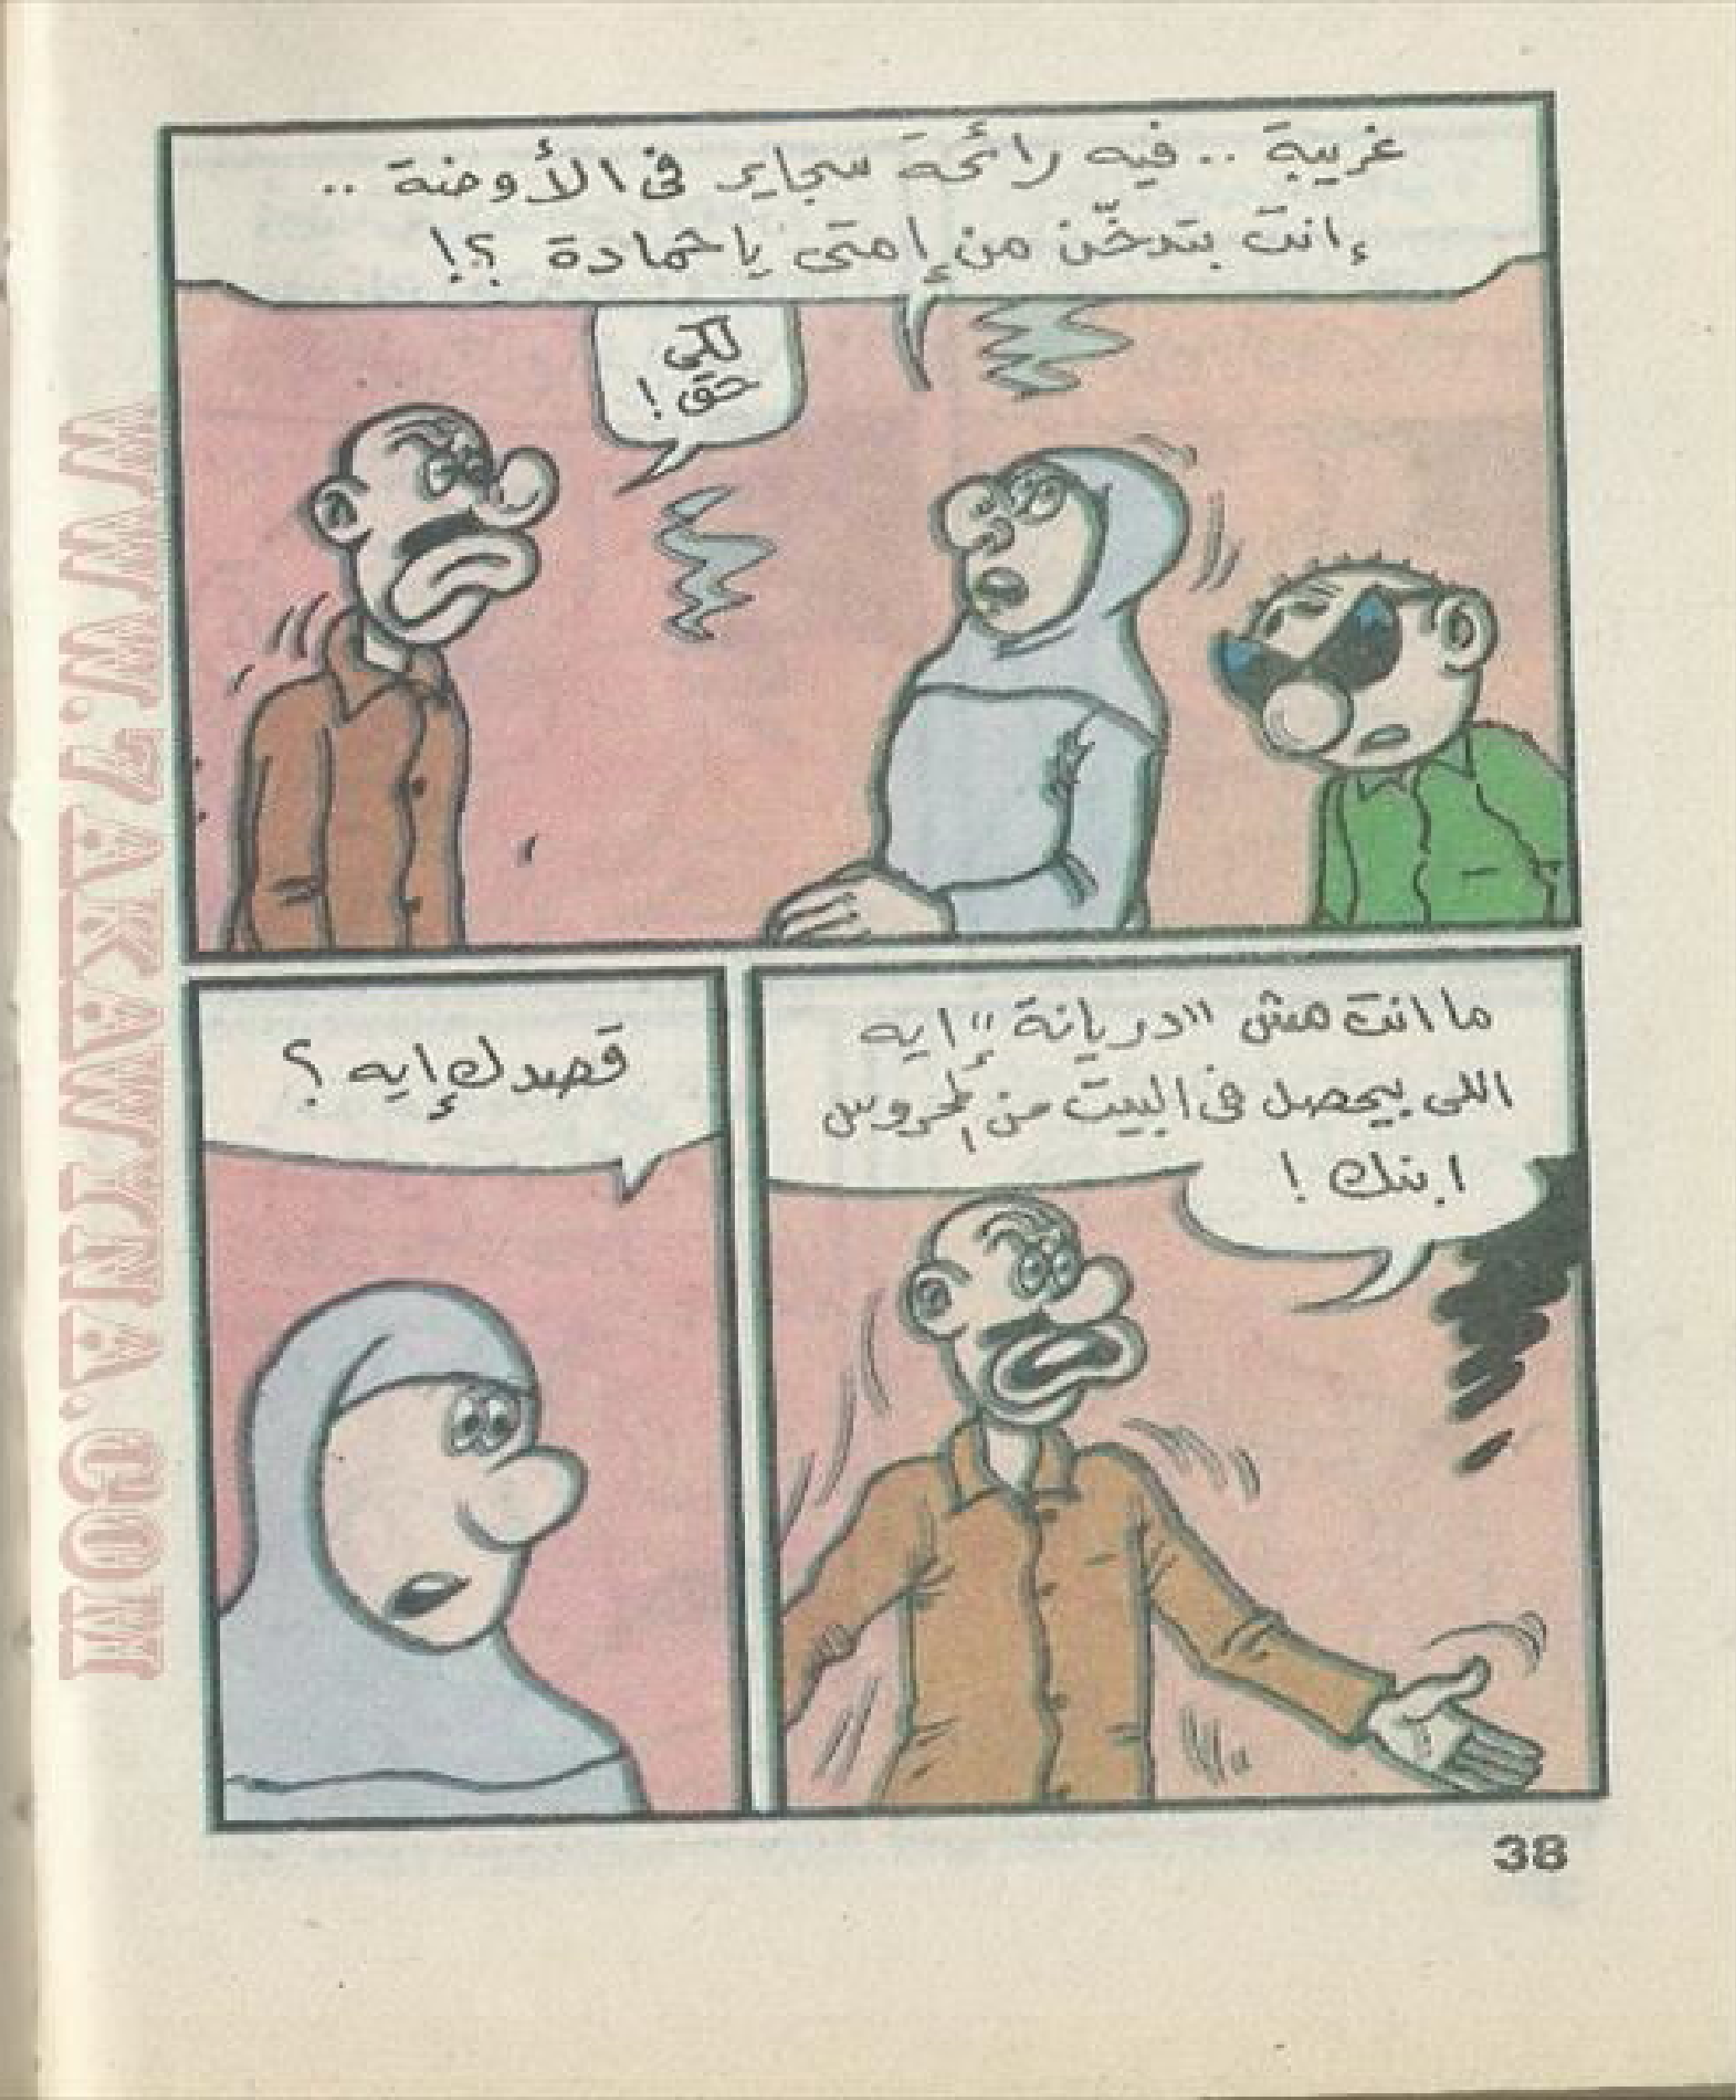 غريبة .. فيه رائحة سجاير فى الأوضة ..
إنت بتدخّن من إمتى يا حمادة ؟!
لكى
حق !
ما انت مش "دريانة" إيه
اللى بيحصل فى البيت من المحروس
ابنك !
قصدك إيه ؟
38
WWW.7AKAWTNA.COM